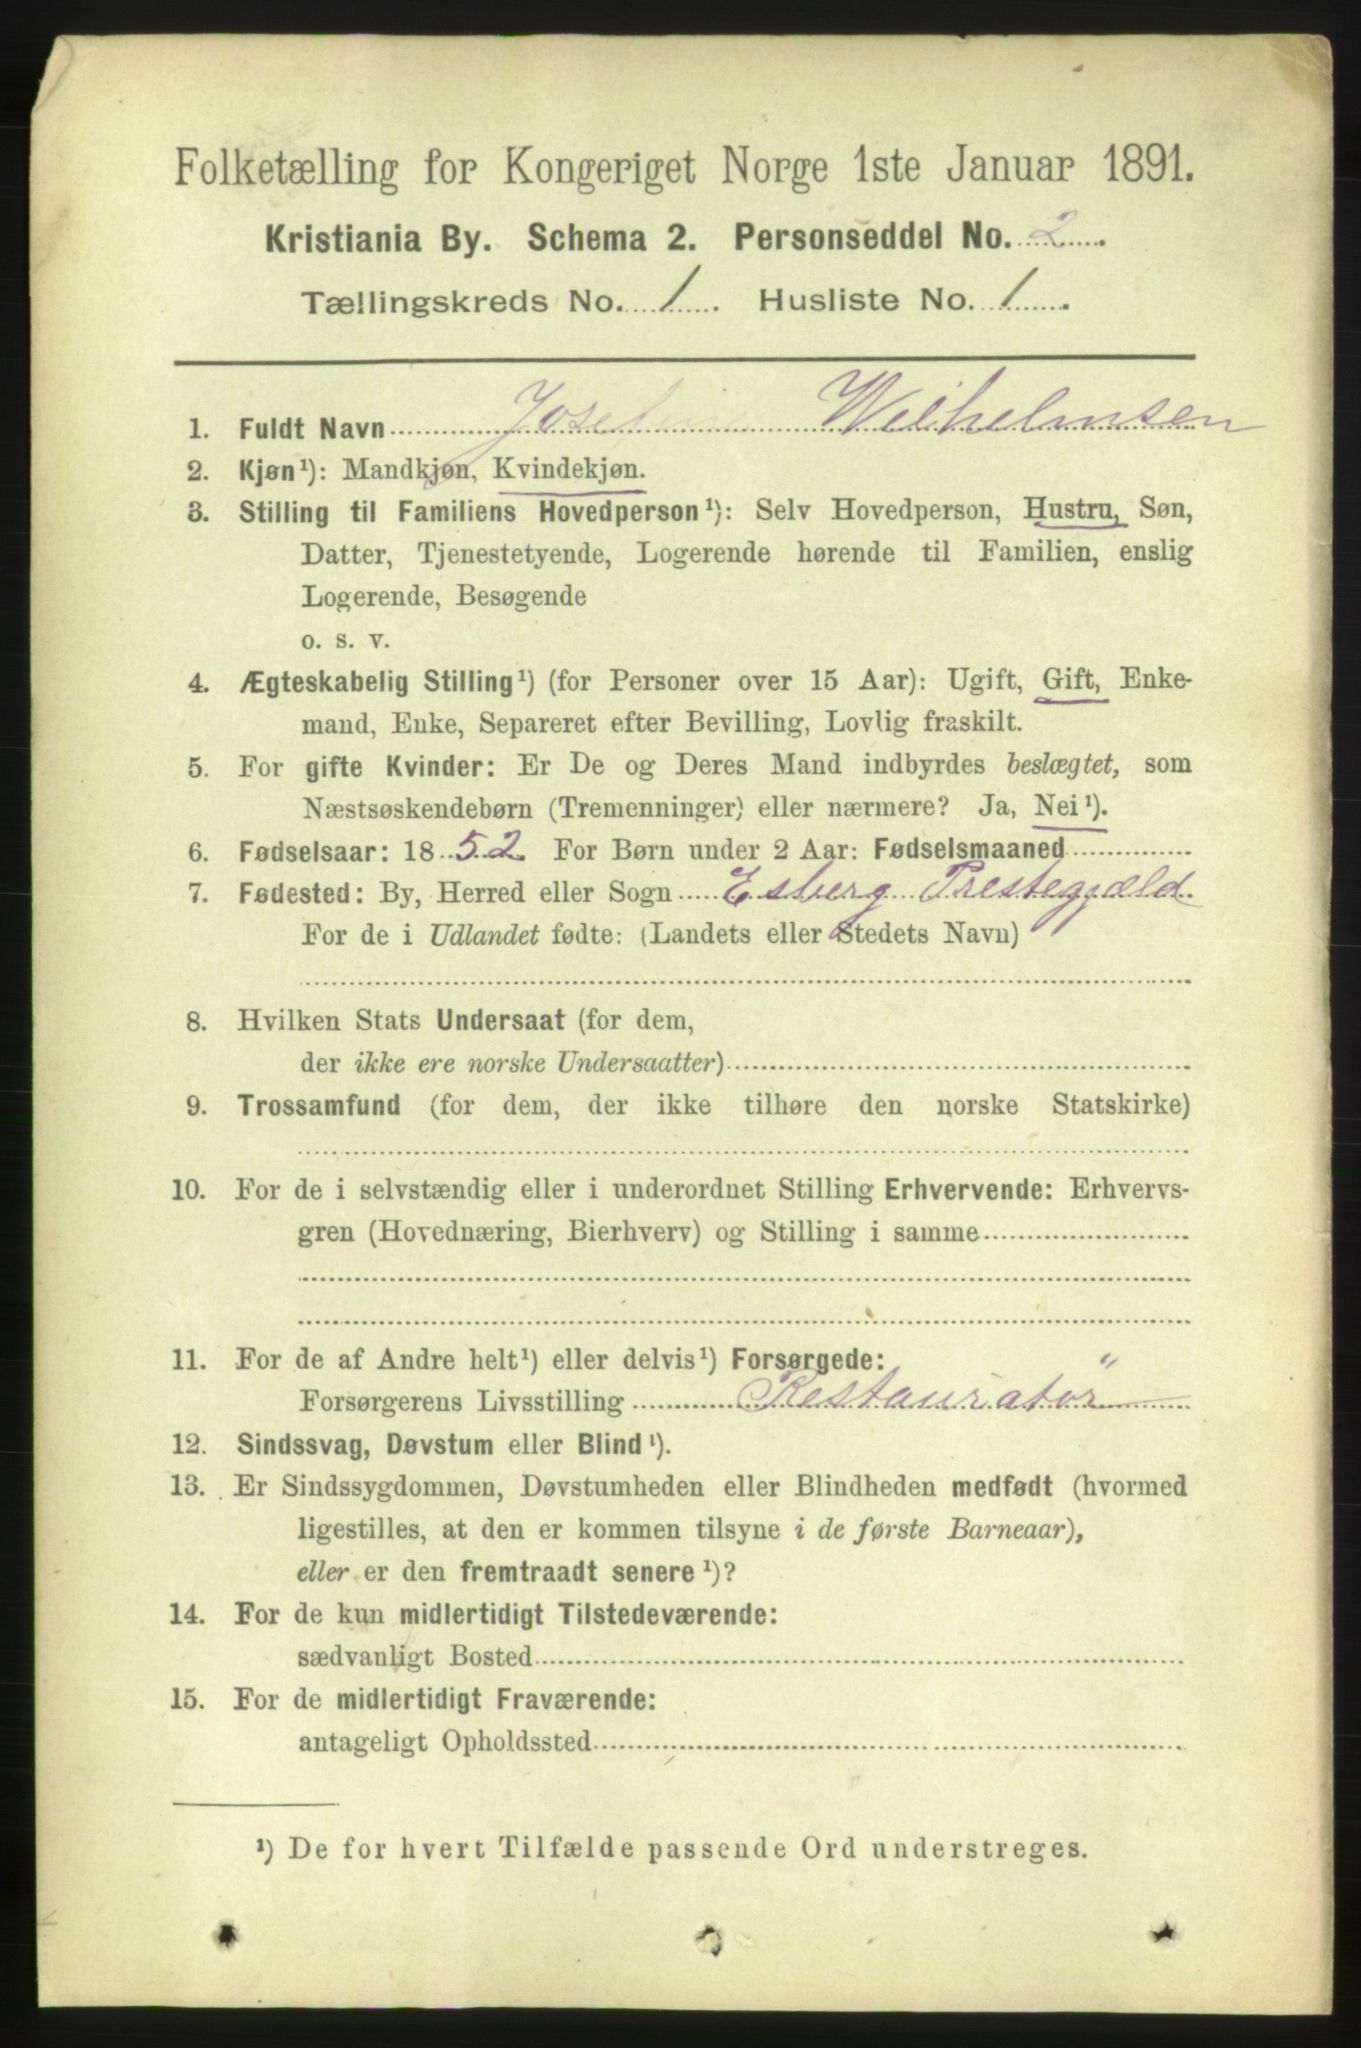 Folketælling for Kongeriget Norge 1ste Januar 1891.
Kristiania By. Schema 2. Personseddel No. 2
Tællingskreds No. 1. Husliste No. 1
1. Fuldt Navn Josefine Wilhelmsen
2. Kjøn¹): Mandkjøn, Kvindekjøn.
3. Stilling til Familiens Hovedperson¹): Selv Hovedperson, Hustru, Søn,
Datter, Tjenestetyende, Logerende hørende til Familien, enslig
Logerende, Besøgende
o. s. v.
4. Ægteskabelig Stilling¹) (for Personer over 15 Aar): Ugift, Gift, Enke-
mand, Enke, Separeret efter Bevilling, Lovlig fraskilt.
5. For gifte Kvinder: Er De og Deres Mand indbyrdes beslægtet, som
Næstsøskendebørn (Tremenninger) eller nærmere? Ja, Nei¹).
6. Fødselsaar: 1852 For Børn under 2 Aar: Fødselsmaaned
7. Fødested: By, Herred eller Sogn Esberg Prestegjæld
For de i Udlandet fødte: (Landets eller Stedets Navn)
8. Hvilken Stats Undersaat (for dem,
der ikke ere norske Undersaatter)
9. Trossamfund (for dem, der ikke tilhøre den norske Statskirke)
10. For de i selvstændig eller i underordnet Stilling Erhvervende: Erhvervs-
gren (Hovednæring, Bierhverv) og Stilling i samme
11. For de af Andre helt¹) eller delvis¹) Forsørgede:
Forsørgerens Livsstilling Restauratör
12. Sindssvag, Døvstum eller Blind¹).
13. Er Sindssygdommen, Døvstumheden eller Blindheden medfødt (hvormed
ligestilles, at den er kommen tilsyne i de første Barneaar),
eller er den fremtraadt senere¹)?
14. For de kun midlertidigt Tilstedeværende:
sædvanligt Bosted
15. For de midlertidigt Fraværende:
antageligt Opholdssted
¹) De for hvert Tilfælde passende Ord understreges.